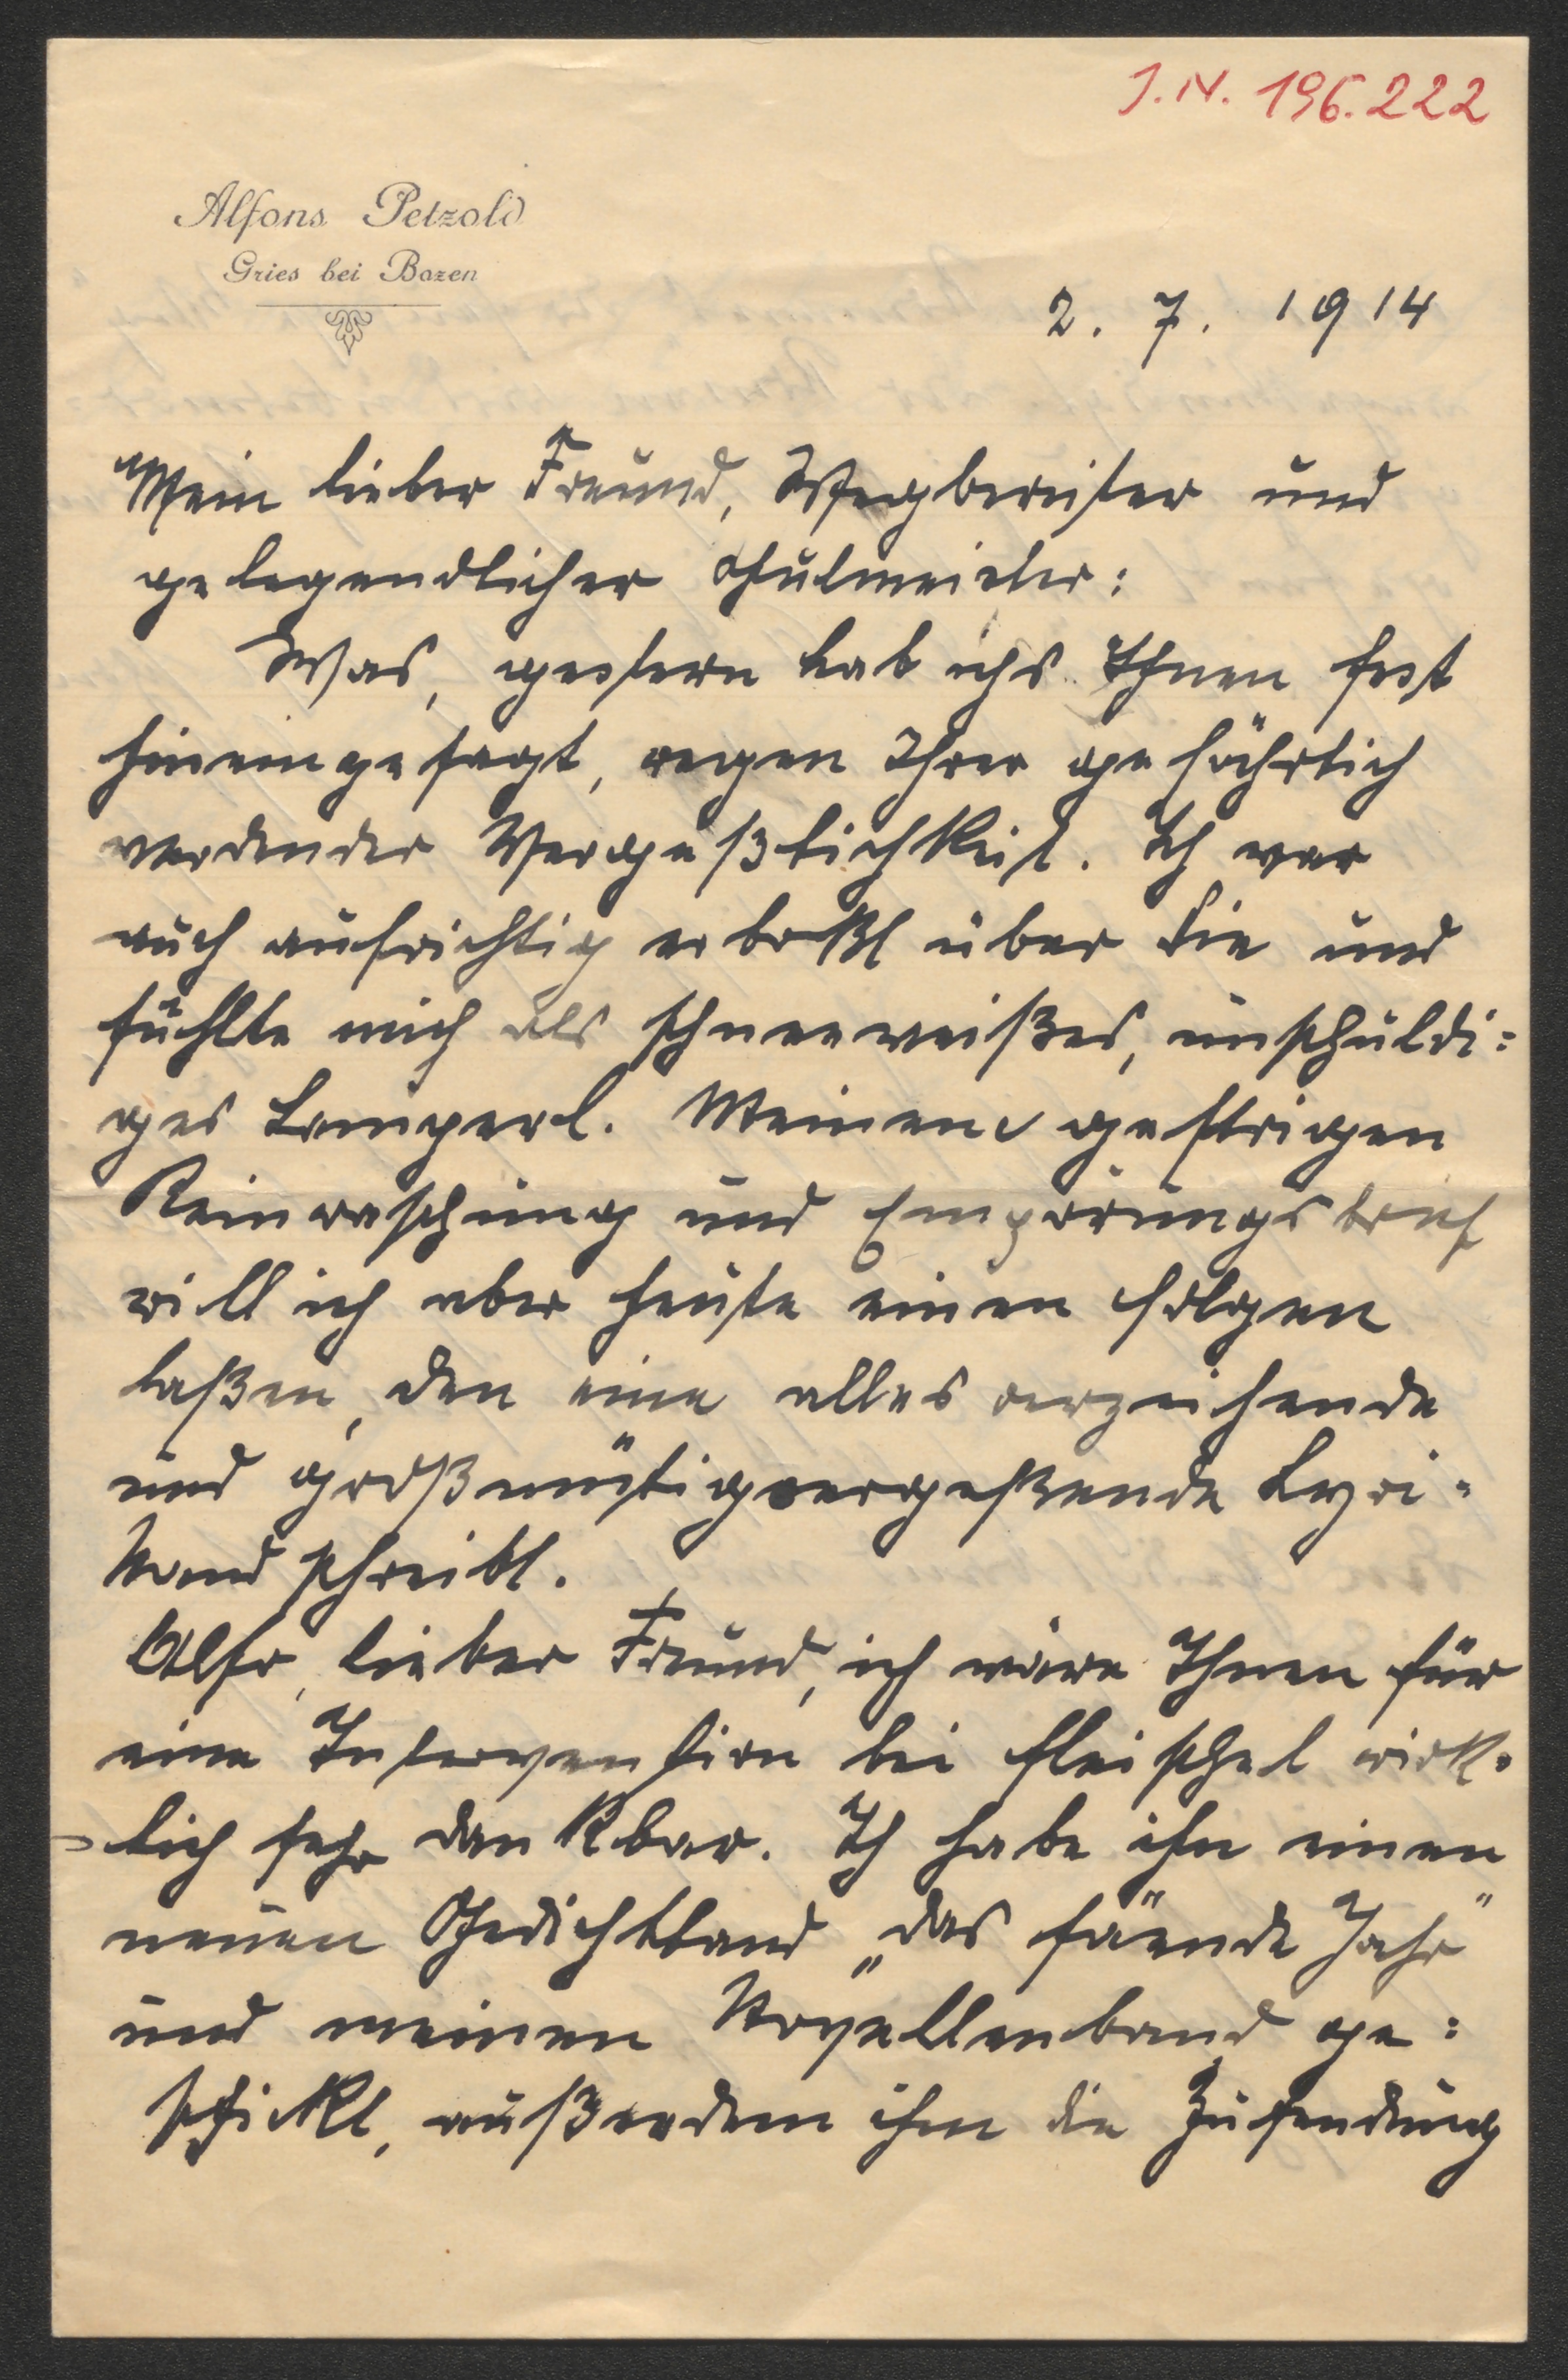 J.N. 196.222
Alfons Petzold
Gries bei Bozen
2. 7. 1914
Mein lieber Freund, Wegbereiter und
gelegendlicher Schulmeister:
Was, gestern hab ichs Ihnen fest
hineingesagt, wegen Ihrer gefährlich
werdender Vergeßlichkeit. Ich war
auch aufrichtig erboßt über Sie und
fühlte mich als schneeweißes, unschuldi=
ges Lamperl. Meinen gestrigen
Reinwaschung und Empörungsbrief
will ich aber heute einen folgen
laßen, den eine alles verzeihende
und großmütigvergeßende Lyri=
kand schreibt.
Also, lieber Freund, ich wäre Ihnen für
eine Intervention bei Fleischel wirk=
lich sehr dankbar. Ich habe ihm einen
neuen Gedichtband „das säende Jahr"
und meinen Novellenband ge=
schickt, außerdem ihm die Zusendung